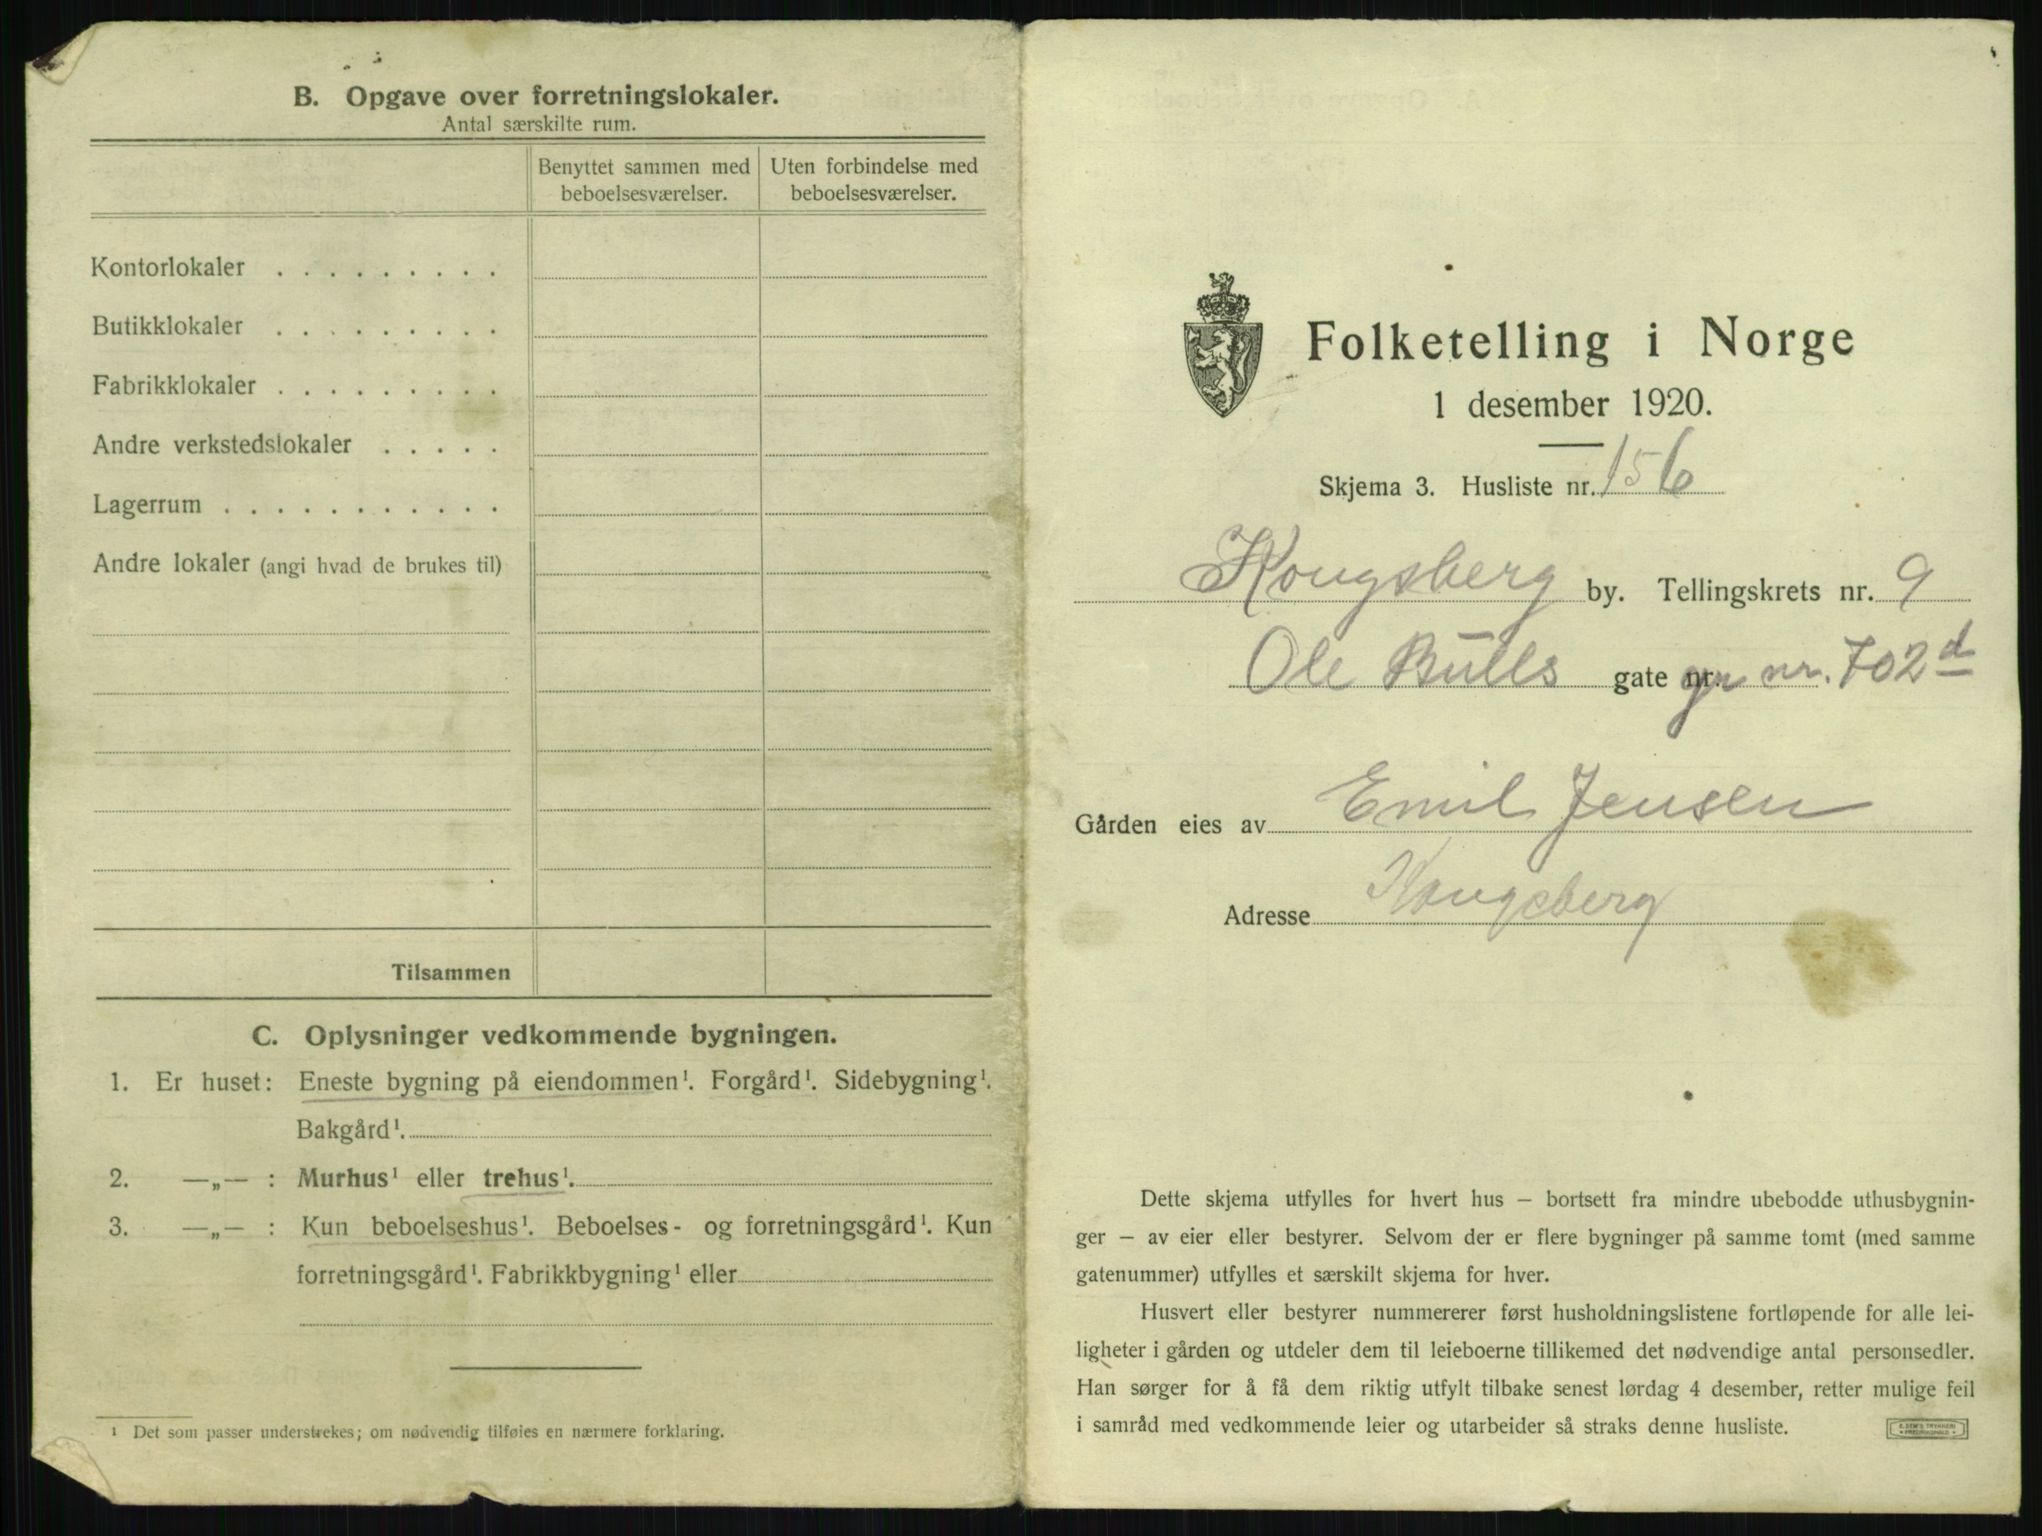 B. Opgave over forretningslokaler.
Antal særskilte rum.
Benyttet sammen med beboelsesværelser.
Uten forbindelse med beboelsesværelser.
Kontorlokaler . . . . . . . . .
Butikklokaler . . . . . . . . .
Fabrikklokaler . . . . . . . . .
Andre verkstedslokaler . . . . .
Lagerrum . . . . . . . . . . .
Andre lokaler (angi hvad de brukes til)
Tilsammen
C. Oplysninger vedkommende bygningen.
1. Er huset: Eneste bygning på eiendommen¹. Forgård¹. Sidebygning¹.
Bakgård¹.
2. —„— : Murhus¹ eller trehus¹.
3. —„— : Kun beboelseshus¹. Beboelses- og forretningsgård¹. Kun
forretningsgård¹. Fabrikkbygning¹ eller
¹ Det som passer understrekes; om nødvendig tilføies en nærmere forklaring.
Folketelling i Norge
1 desember 1920.
Skjema 3. Husliste nr. 156
Kongsberg by. Tellingskrets nr. 9
Ole Bulls gate nr. gr nr. 702 d
Gården eies av Emil Jensen
Adresse Kongsberg
Dette skjema utfylles for hvert hus – bortsett fra mindre ubebodde uthusbygnin-
ger – av eier eller bestyrer. Selvom der er flere bygninger på samme tomt (med samme
gatenummer) utfylles et særskilt skjema for hver.
Husvert eller bestyrer nummererer først husholdningslistene fortløpende for alle lei-
ligheter i gården og utdeler dem til leieboerne tillikemed det nødvendige antal personsedler.
Han sørger for å få dem riktig utfylt tilbake senest lørdag 4 desember, retter mulige feil
i samråd med vedkommende leier og utarbeider så straks denne husliste.